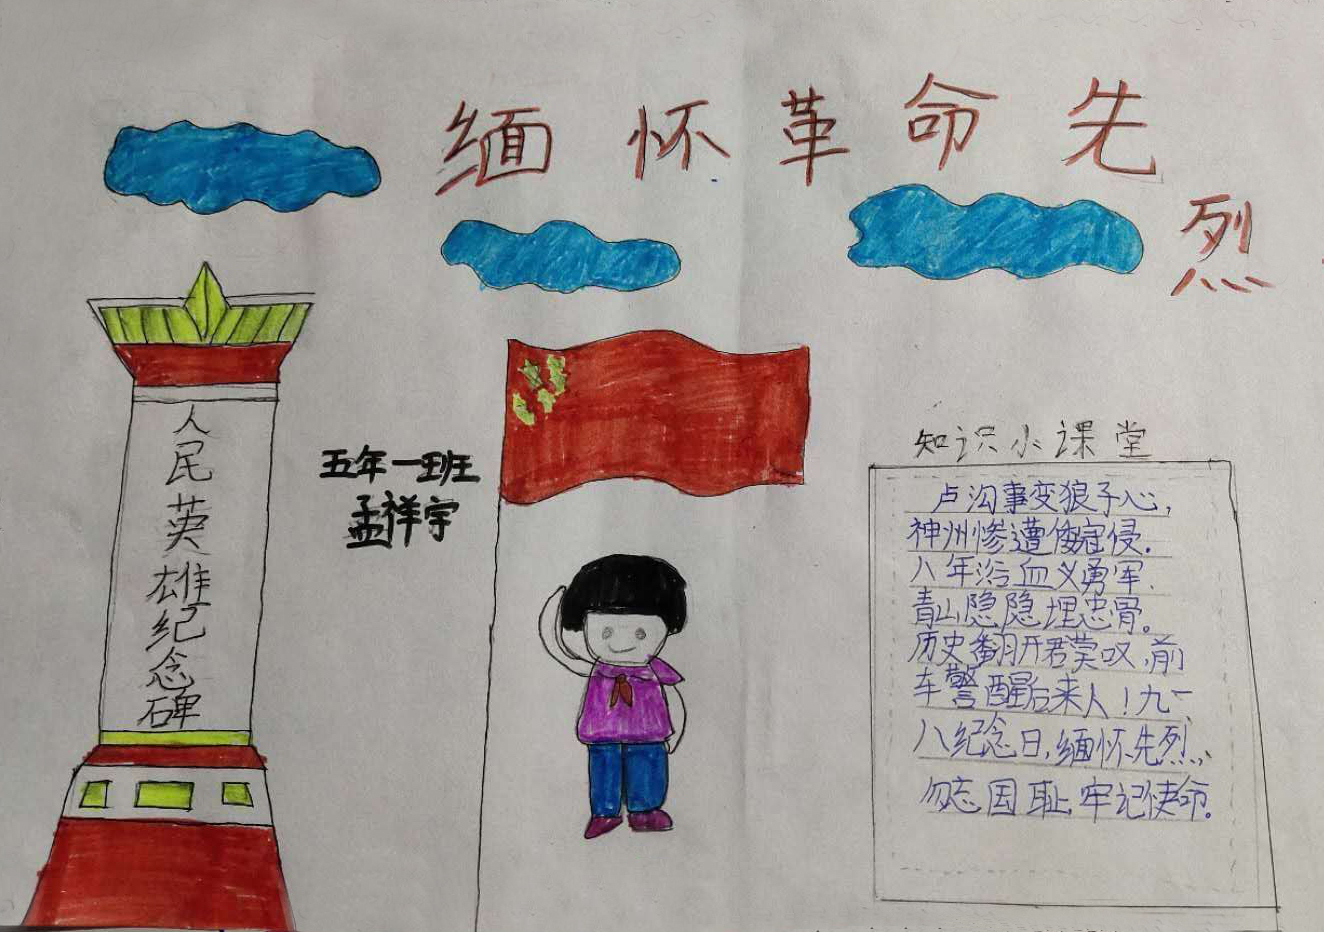 缅怀革命先烈
人民英雄纪念碑
五年一班
孟祥宇
知识小课堂
卢沟事变狼子心，
神州惨遭倭寇侵.
八年浴血义勇军.
青山隐隐埋忠骨。
历史翻开君莫叹，前
车警醒后来人！九一
八纪念日，缅怀先烈、
勿忘国耻牢记使命。